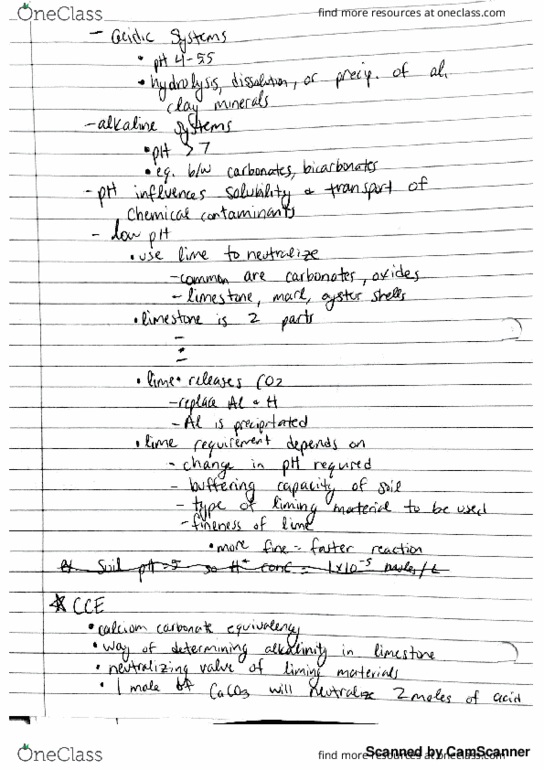 OneClass
find more resources at oneclass.com
- Acidic Systems
• pH 4-5.5
• hydrolysis, dissolution, or precip. of al,
clay minerals
- alkaline systems
• pH > 7
• eq. b/w carbonates, bicarbonates
- pH influences solubility & transport of
chemical contaminants
- low pH
• use lime to neutralize
- common are carbonates, oxides
- limestone, marl, oyster shells
• limestone is 2 parts
• lime • releases CO2
- replace Al & H
- Al is precipitated
• lime requirement depends on
- change in pH required
- buffering capacity of soil
- type of liming material to be used
- fineness of lime
• more fine = faster reaction
Soil pH = 5 so H+ conc = 1x10-5 moles/L
* CCE
• calcium carbonate equivalency
• way of determining alkalinity in limestone
• neutralizing value of liming materials
• 1 mole of CaCO3 will neutralize 2 moles of acid
Scanned by CamScanner
OneClass
find more resources at oneclass.com